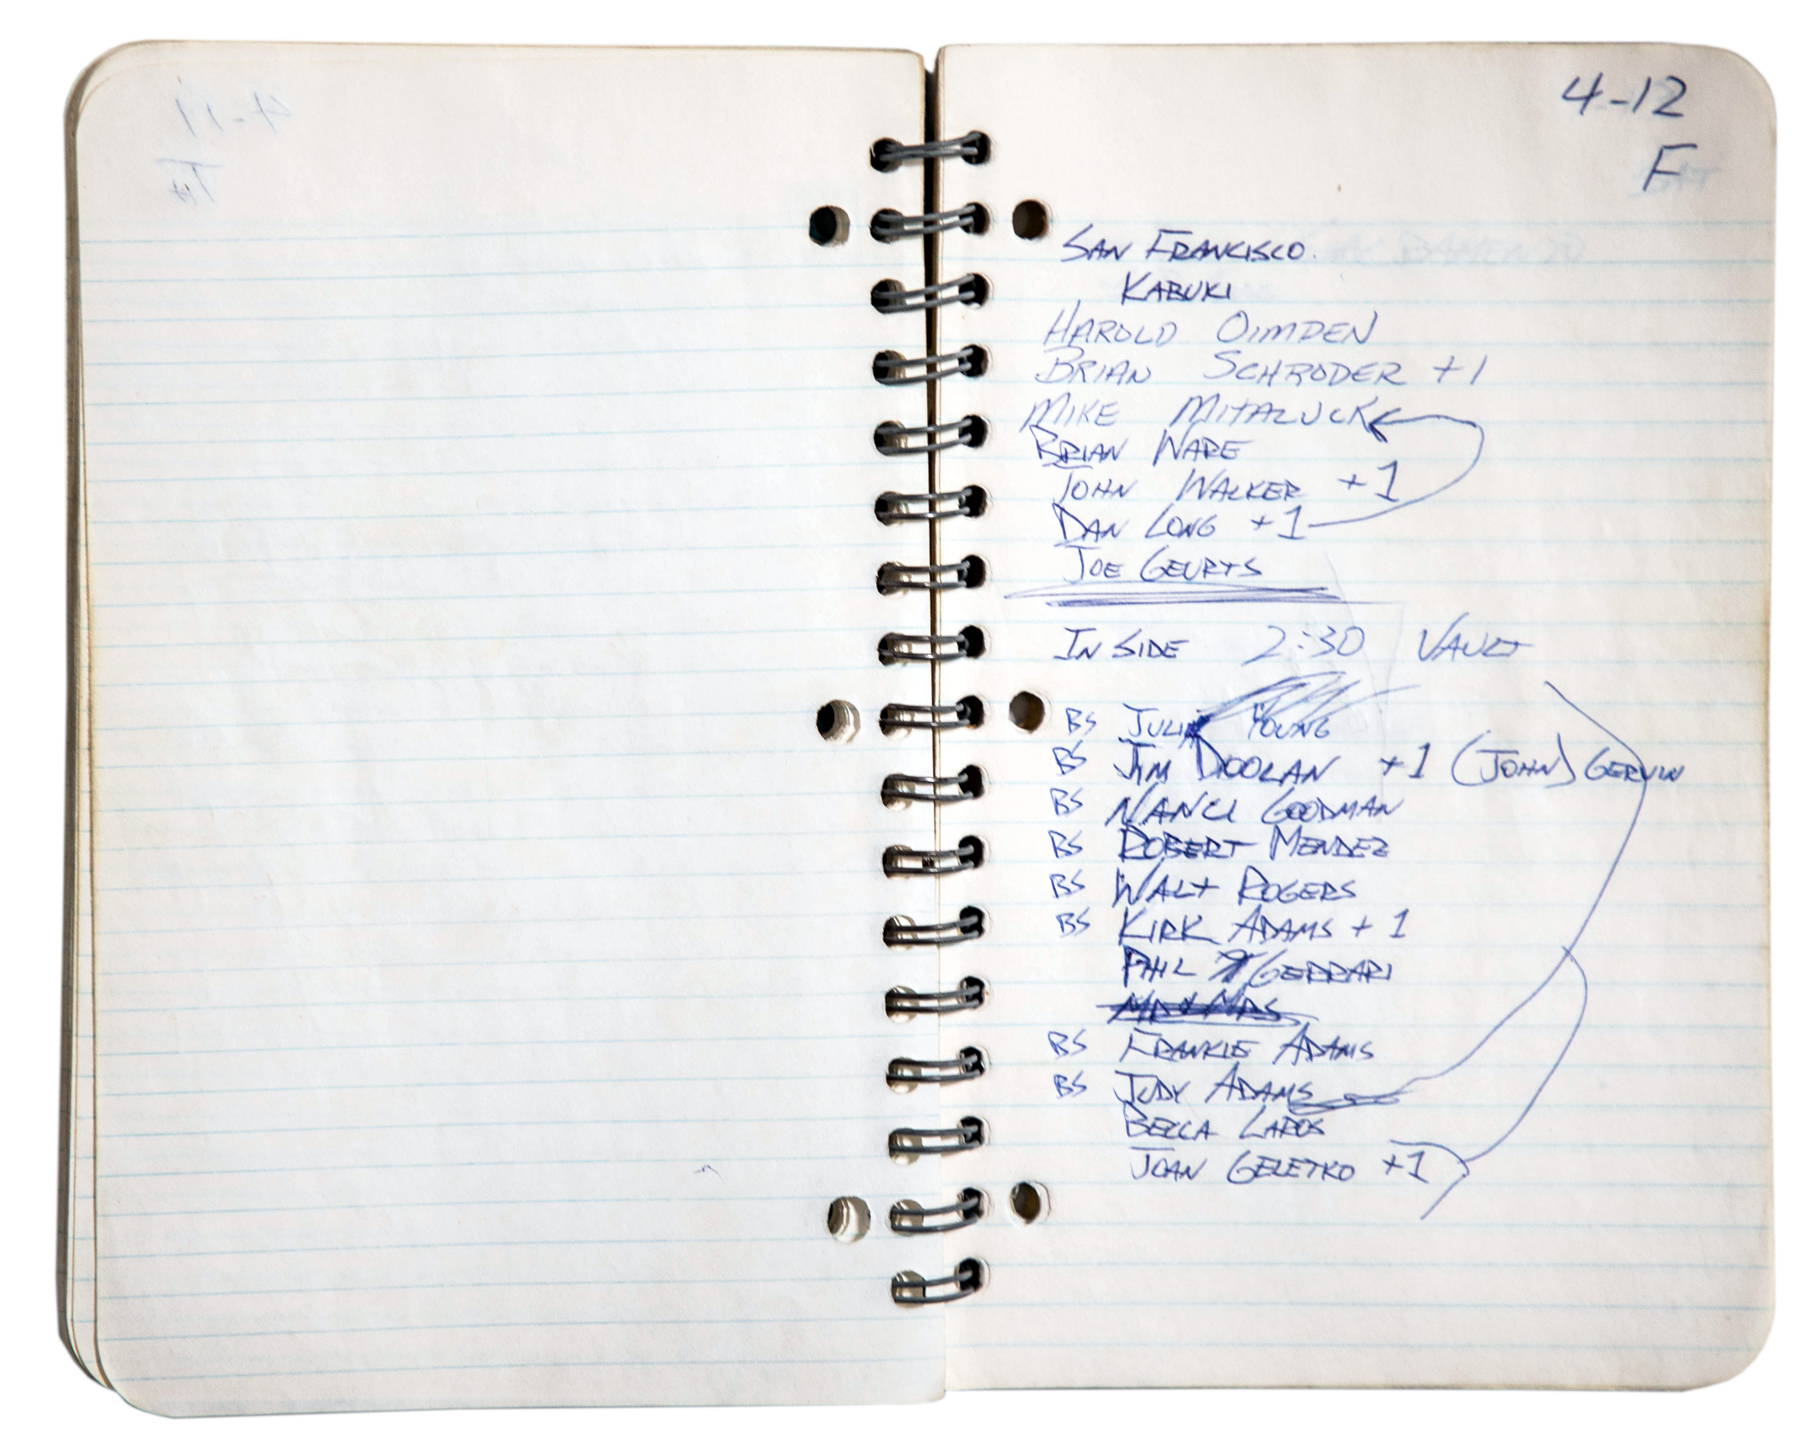 4-11
TH
4-12
F
SAN FRANCISCO
KABUKI
HAROLD OIMDEN
BRIAN SCHRODER +1
MIKE MITALUCK
BRIAN WARE
JOHN WALKER +1
DAN LONG +1
JOE GEURTS
INSIDE 2:30 VAULT
BS JULIE YOUNG
BS JIM DOOLAN +1 (JOHN) GERVIN
BS NANCI GOODMAN
BS ROBERT MENDEZ
BS WALT ROGERS
BS KIRK ADAMS +1
PHIL GERRARI
MR & MRS
BS FRANKIE ADAMS
BS JUDY ADAMS
BECCA LAROS
JOAN GELETKO +1